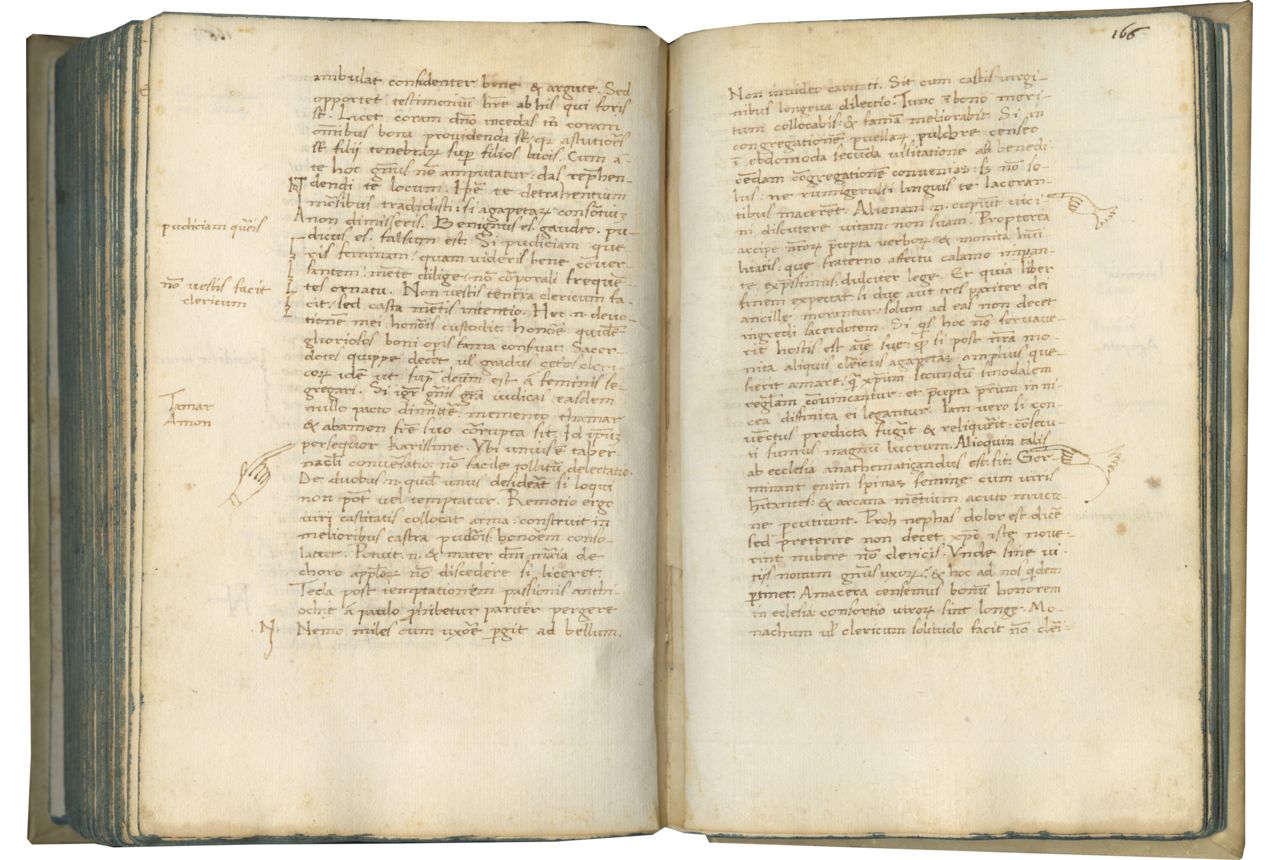 ambulat confidenter bene & argute. Sed
opportet testimoniū bre ab his qui foris
st̄. Licet coram dn̄o incedas tn̄ coram
omībus bona providenda st̄: qr astutiorēs
st̄ filii tenebrarꝝ sup filios lucis. Cum a-
te hoc gn̄us nō amputatur: das rephen-
dendi te locum. Ipē te detrahentium
morsibus tradidisti: si agapetarꝝ consortiuꝫ
non dimisseris. Benignus es. gaudeo. pu-
dicus es. falsum est. Si pudiciam que-
ris feminam: quam videris bene cōver-
santem: mēte dilige: nō corporali frequē-
tes ornatu. Non vestis tenera clericum fa-
cit: sed casta mētis intentio. Hec n. devo-
tionēm mei honōris custodit: honorē quidē
gloriosos boni opis fama confuati. Sacer-
dotes quippe decet ul gradus cetos cleri
corꝝ idem ut sup dcum est a feminis se-
gregari. Si igr̄ gn̄is grā iudicas easdem
nullo pacto dimittē: memento thamar
& abamon fre suo corrupta sit. Id ipuꝫ
persequor karissime. Ubi unius ē taber-
nacli conversatio: nō facile tollitur delectatio.
De duobus n. quod unus desiderat si loqui
non pōt vel temptatur. Remotio ergo
viri castitatis collocat arma: construit in
melioribus castra pudōris: honōem conso-
latur. Potuit. n. & mater dn̄i maria de
choro applorꝝ nō discedere si liceret.
Tecla post temptationem passionis anthi-
ochie a paulo phibetur pariter pergere
Nemo miles cum uxore pgit ad bellum.
pudiciam queris
nō vestis facit
clericum
Tamar
Amon
N
166
Non invideo caritati. Sit cum castis virgi-
nibus longeva dilectio. Tunc ī bono meri-
tum collocabis: & famam meliorabis. Si in
congregationē puellarꝝ pulchre censeo
ī ebdomoda secunda visitatione ad benedi-
cēdam cōgregationēm convenias: Is nō so-
lus: ne rumigerulis linguis te laceran-
tibus maceret. Alienam. n. cupiut vici-
ni discutere vitam non suam. Propterea
accipe nrorꝝ pcepta verborꝝ & monita hūi
litatis: que fraterno affectu calamo impan-
te, expssimus: dulciter lege. Et quia liber
finem expectat si due aut tres pariter dei
ancille morantur: solum ad eas non decet
ingredi sacerdotem. Si qs hoc nō servave-
rit hostis est aīe sue: qr si post nrā mo-
nita aliquis clericus agapetas amplius que-
sierit amare. qr xpum secundū sinodalem
reglam coīmcantur: et pcepta prum in ni-
cea diffinita ei legantur. Iam vero si con-
vēctus predicta fugit & reliquerit: cōsecu-
ti sumus magnū lucrum. Alioquin talis
ab ecclesia anathematicandus est. sit. Ger-
minant enim spinas femine cum viris
hitantes: & arcana mētium acuto mucro-
ne pcutiunt. Proh nephas dolor est dicē
sed preterire non decet. xpc iste nove-
rint nubere nō clericis. Unde sine vi-
tiis novum gn̄us uxorꝝ: & hoc ad nos qdem
ptinet. Amacera censemus bonū honorem
in ecclesia: consortio virorꝝ sint longe. Mo-
nachum ul clericum solitudo facit nō cleri-